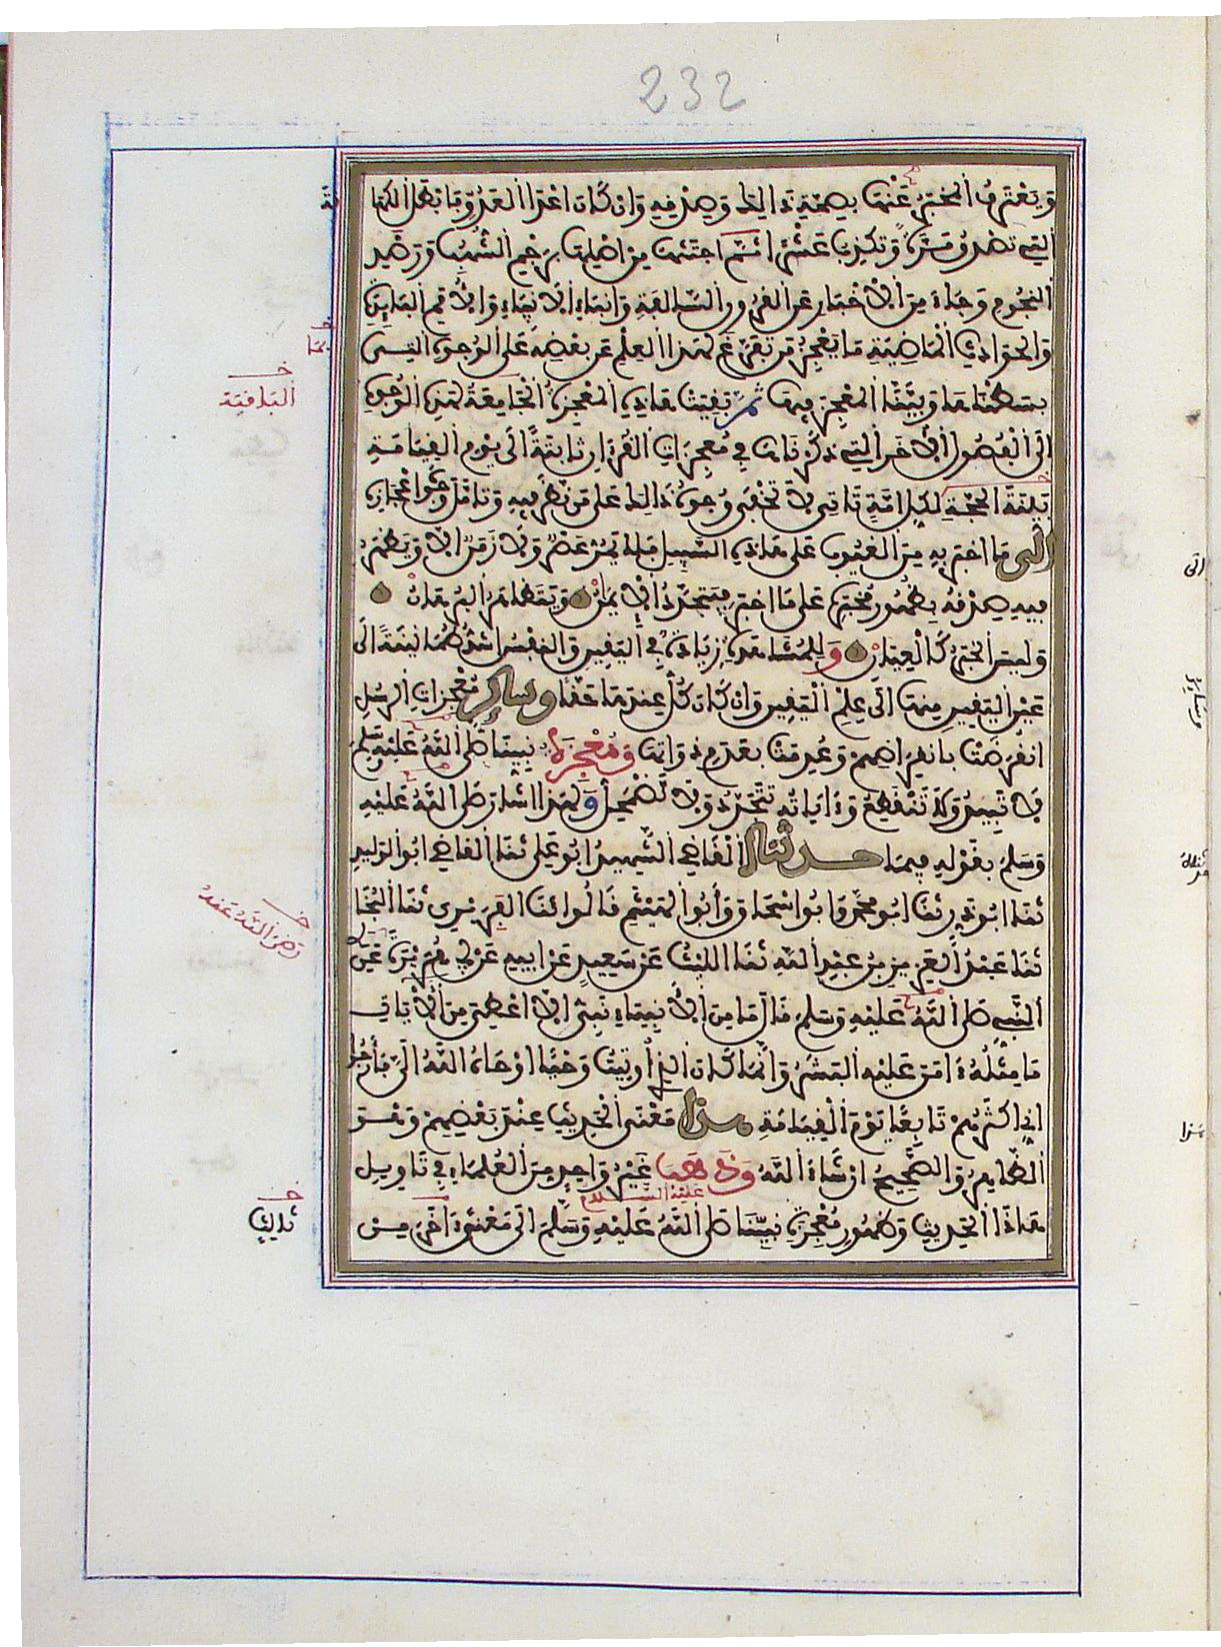 232
ويعترف المخبر عنها بصحة ذالك وصدقه وان كان اعدا العدو وما نقل الكهنة
التي تصدق مرة وتكذب عشرا ثم اجتثها من اصلها برجم الشهب ورصد
النجوم وجاء من الاخبار عن القرون السالفة وانباء الانبياء والامم البائدة
والحوادث الماضية ما يعجز من تفرغ لهذا العلم عن بعضه على الوجوه التي
بسطناها وبينا المعجز فيها ثم بقيت هاذه المعجزة الجامعة لهذه الوجوه
الى الفصول الاخر التي ذكرناها في معجزات القرءان ثابتة الى يوم القيامة
بينة الحجة لكل امة تاتي لا تخفى وجوه ذالك على من نظر فيه وتامل وجوه اعجازه
الى ما اخبر به من الغيوب على هاذه السبيل فلا يمر عصر ولا زمن الا ويظهر
فيه صدقه بظهور مخبره على ما اخبر فيتجدد الايمان ويتظاهر البرهان
وليس الخبر كالعيان وللمشاهدة زيادة في اليقين والنفس اشد طمانينة الى
عين اليقين منها الى علم اليقين وان كان كل عندها حقا وساير معجزات الرسل
انقرضت بانقراضهم وعدمت بعدم ذواتها ومعجزة نبينا صلى الله عليه وسلم
لا تبيد ولا تنقطع وءاياته تتجدد ولا تضمحل ولهذا اشار صلى الله عليه
وسلم بقوله فيما حدثنا القاضي الشهيد ابو علي ثنا القاضي ابو الوليد
ثنا ابو ذر ثنا ابو محمد وابو اسحاق وأبو الهيثم قالوا ثنا الفربري ثنا البخا
ثنا عبد العزيز بن عبد الله ثنا الليث عن سعيد عن ابيه عن ابي هريرة عن
النبي صلى الله عليه وسلم قال ما من الانبياء نبي الا اعطي من الايات
ما مثله ءامن عليه البشر وانما كان الذي أوتيت وحيا اوحاه الله الي فأرجوا
اني اكثرهم تابعا يوم القيامة هذا معنى الحديث عند بعضهم وهو
الظاهر والصحيح ان شاء الله وذهب غير واحد من العلماء في تاويل
هاذا الحديث وظهور معجزة نبينا صلى الله عليه وسلم الى معنى ءاخر من
عليه السلام
خـ
بها
خـ
الباقية
خـ
رضي الله عنه
خـ
ذلك